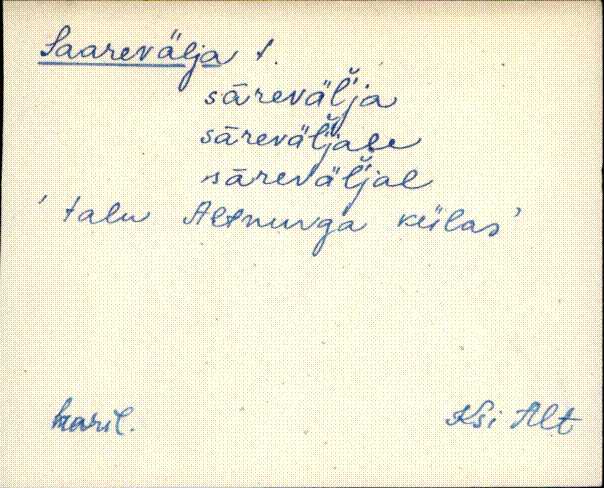 Saarevälja t.
sāreväl̆ja
sāreväl̆jale
sāreväl̆jal
' talu Altnurga külas '
haril. Ksi Alt